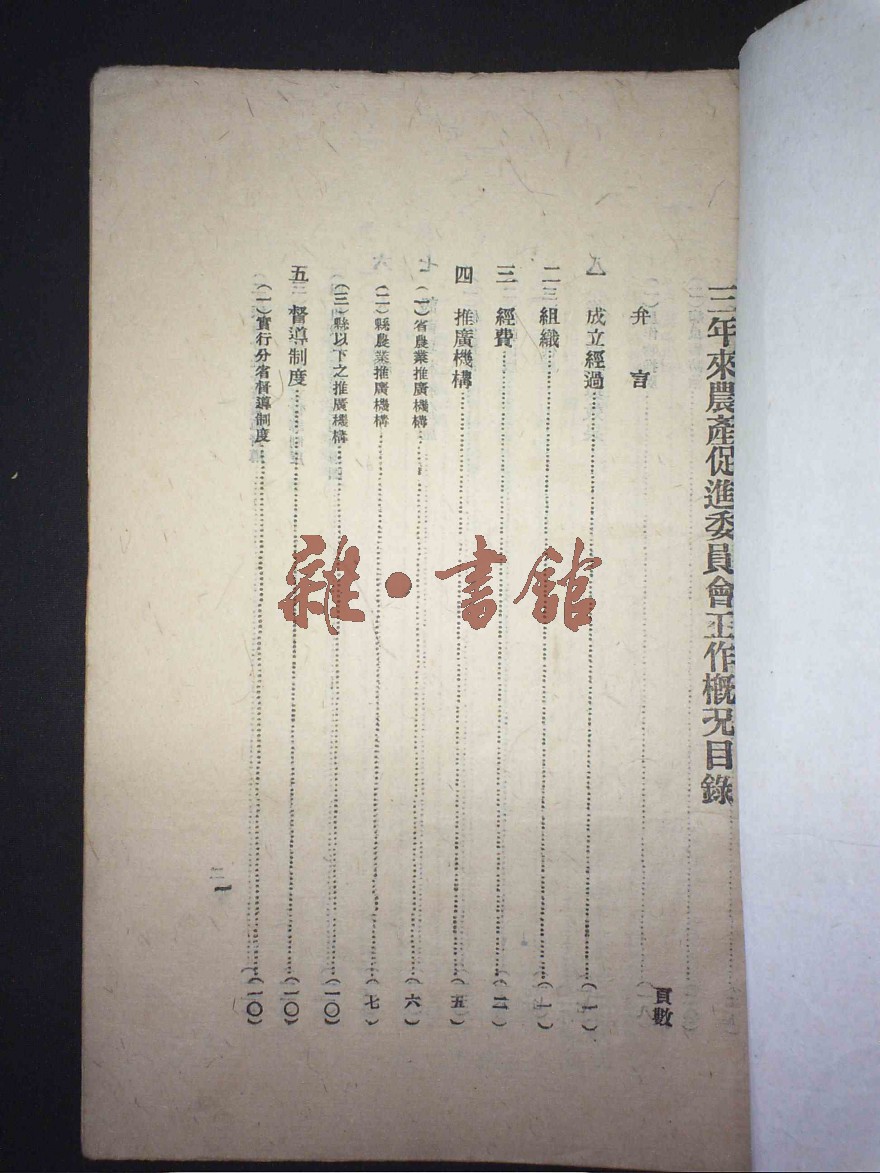 三年來農產促進委員會工作概况目錄
頁數
弁言
一 成立經過……(一)
二 組織……(一)
三 經費……(二)
四 推廣機構……(五)
(一)省農業推廣機構……(六)
(二)縣農業推廣機構……(七)
(三)縣以下之推廣機構……(一〇)
五 督導制度……(一〇)
(一)實行分省督導制度……(一〇)
一
雜·書館